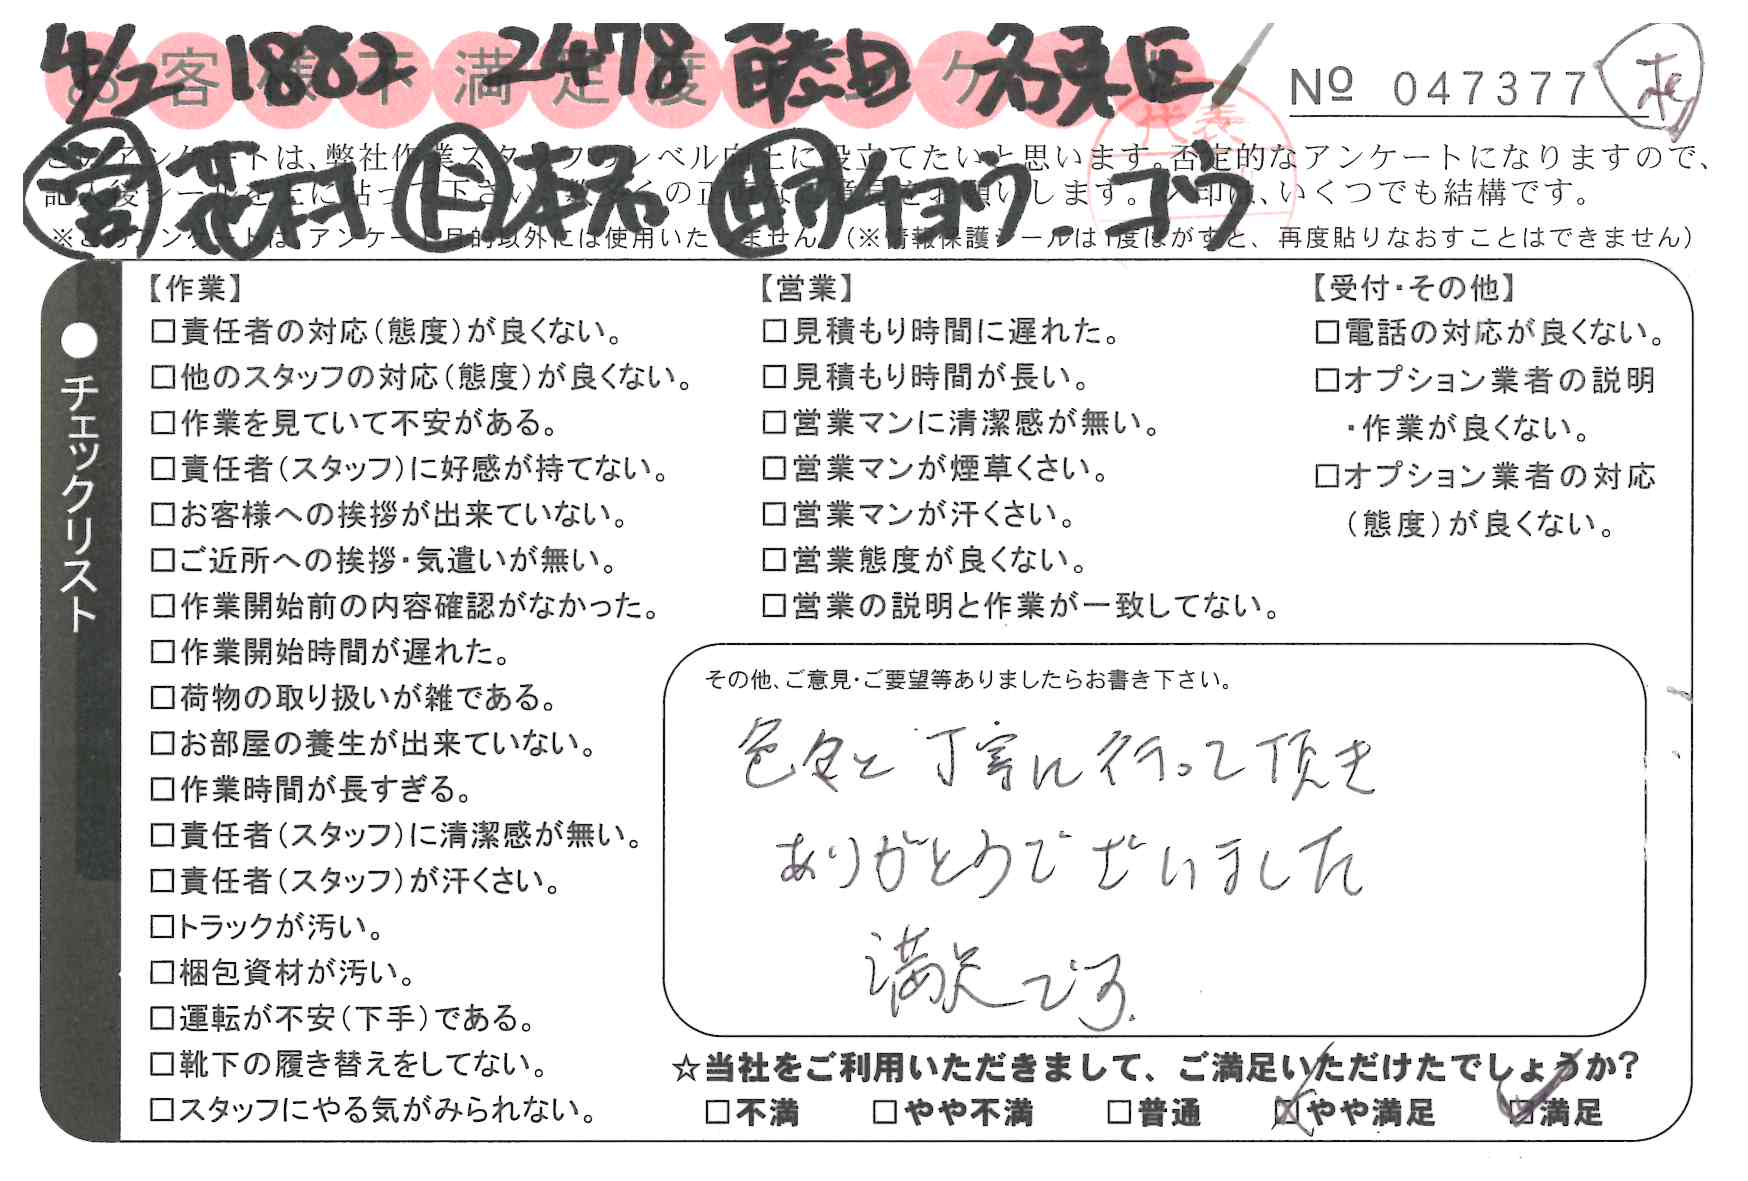 4/2 1882 2478 藤田 名東区
お客様不満足度アンケート
代表
№ 047377
営 花村 ド 本名 助 チョウ ゴウ
このアンケートは、弊社作業スタッフのレベル向上に役立てたいと思います。否定的なアンケートになりますので、
記入後シールを上に貼って下さい。数多くの正直なご意見をお願いします。レ印は、いくつでも結構です。
※このアンケートは、アンケート目的以外には使用いたしません。(※情報保護シールは1度はがすと、再度貼りなおすことはできません)
●チェックリスト
【作業】
□責任者の対応(態度)が良くない。
□他のスタッフの対応(態度)が良くない。
□作業を見ていて不安がある。
□責任者(スタッフ)に好感が持てない。
□お客様への挨拶が出来ていない。
□ご近所への挨拶・気遣いが無い。
□作業開始前の内容確認がなかった。
□作業開始時間が遅れた。
□荷物の取り扱いが雑である。
□お部屋の養生が出来ていない。
□作業時間が長すぎる。
□責任者(スタッフ)に清潔感が無い。
□責任者(スタッフ)が汗くさい。
□トラックが汚い。
□梱包資材が汚い。
□運転が不安(下手)である。
□靴下の履き替えをしてない。
□スタッフにやる気がみられない。
【営業】
□見積もり時間に遅れた。
□見積もり時間が長い。
□営業マンに清潔感が無い。
□営業マンが煙草くさい。
□営業マンが汗くさい。
□営業態度が良くない。
□営業の説明と作業が一致してない。
【受付・その他】
□電話の対応が良くない。
□オプション業者の説明
・作業が良くない。
□オプション業者の対応
(態度)が良くない。
その他、ご意見・ご要望等ありましたらお書き下さい。
色々と丁寧に行って頂き
ありがとうございました
満足です。
☆当社をご利用いただきまして、ご満足いただけたでしょうか?
□不満 □やや不満 □普通 □やや満足 □満足